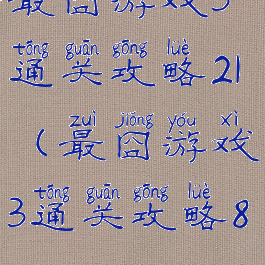 最囧游戏3
tōng guān gōng lüè
通关攻略21
zuì jiǒng yóu xì
(最囧游戏
tōng guān gōng lüè
3通关攻略8